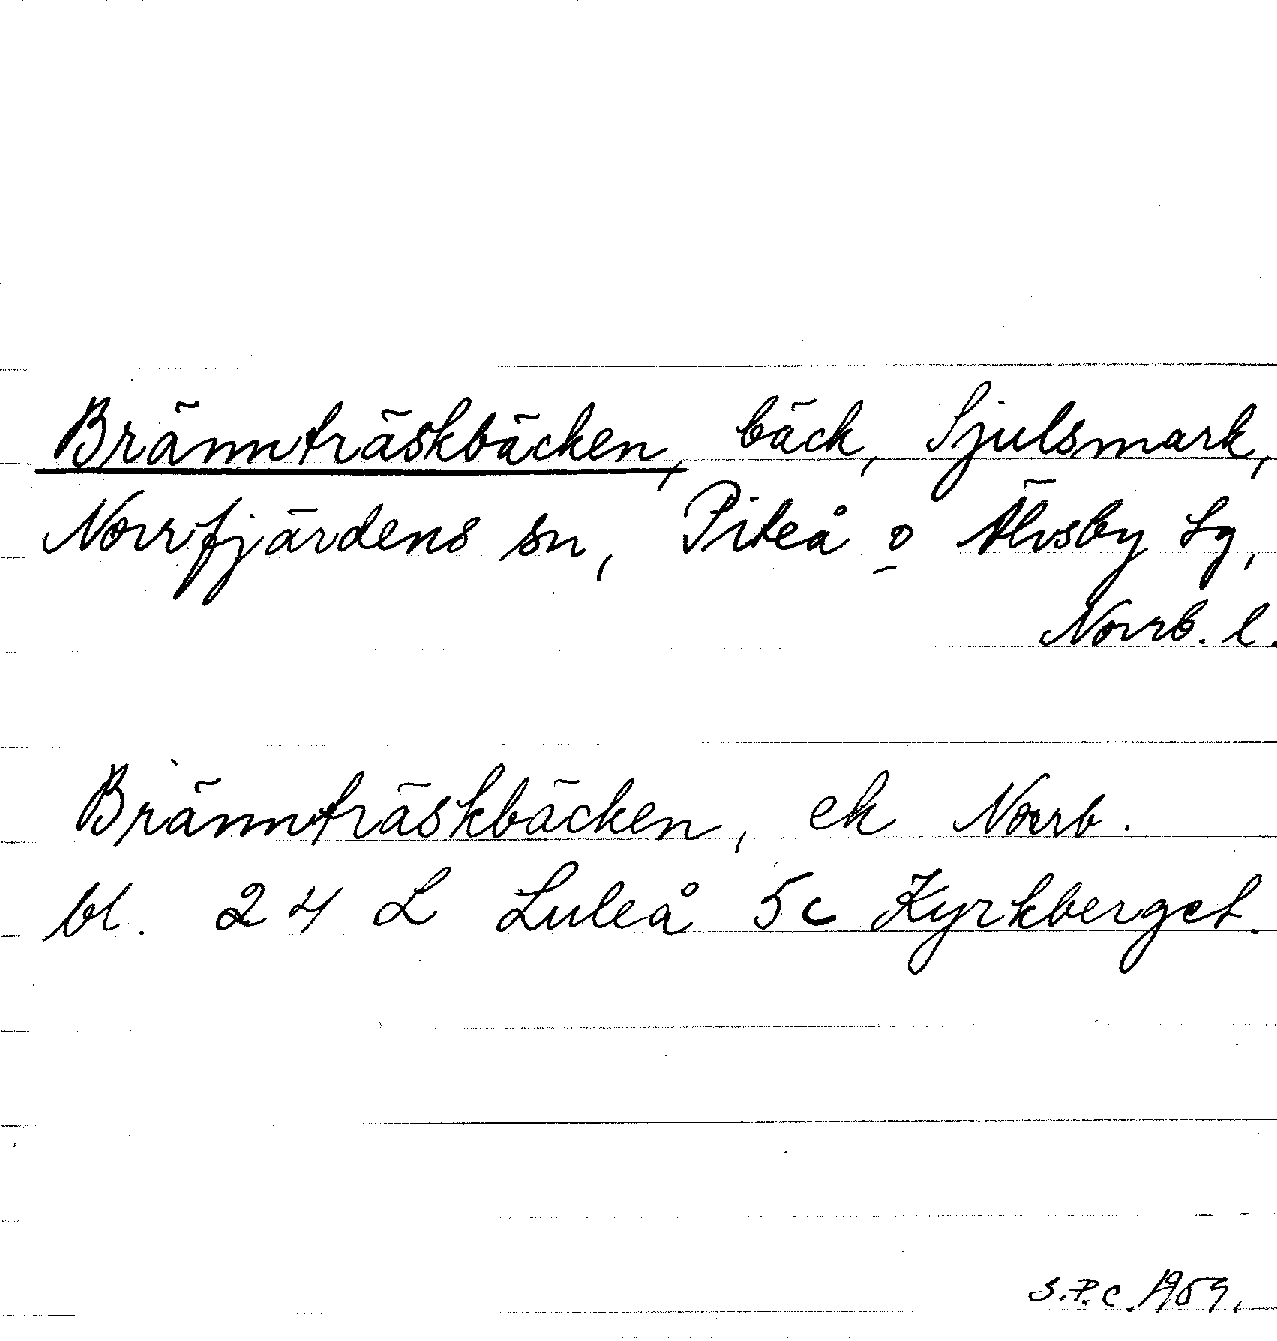 Brännträskbäcken, bäck, Sjulsmark,
Norrfjärdens sn, Piteå o Älvsby tg,
Norrb. l.
Brännträskbäcken, ek Norrb.
bl. 24 L Luleå 5c Kyrkberget.
S.P.C. 1959.